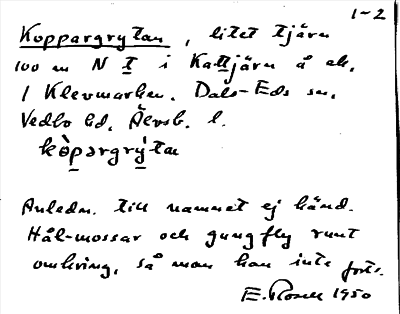 1-2
Koppargrytan, litet tjärn
100 m N I i Kattjärn å ek.
1 Klevmarken. Dals-Eds sn,
Vedbo hd, Älvsb. l.
kòpərgrýtan
Anledn. till namnet ej känd.
Hål-mossar och gungfly runt
omkring, så man kan inte forts.
E. Rosell 1950